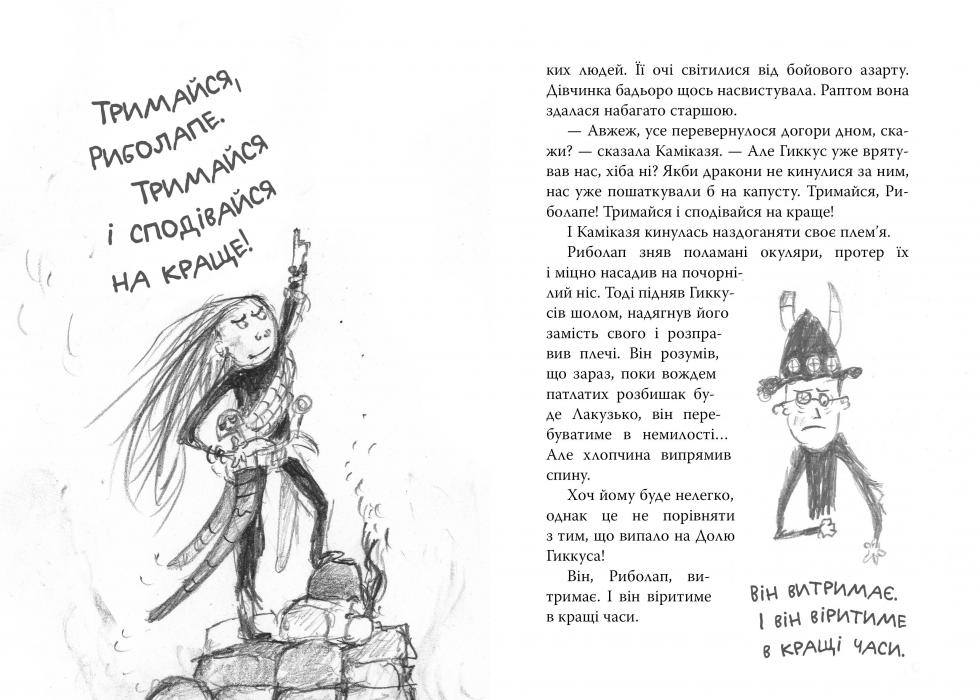 Тримайся,
Риболапе.
Тримайся
і сподівайся
на краще!
ких людей. Її очі світилися від бойового азарту.
Дівчинка бадьоро щось насвистувала. Раптом вона
здалася набагато старшою.
— Авжеж, усе перевернулося догори дном, ска-
жи? — сказала Каміказя. — Але Гиккус уже вряту-
вав нас, хіба ні? Якби дракони не кинулися за ним,
нас уже пошаткували б на капусту. Тримайся, Ри-
болапе! Тримайся і сподівайся на краще!
І Каміказя кинулась наздоганяти своє плем’я.
Риболап зняв поламані окуляри, протер їх
і міцно насадив на почорні-
лий ніс. Тоді підняв Гикку-
сів шолом, надягнув його
замість свого і розпра-
вив плечі. Він розумів,
що зараз, поки вождем
патлатих розбишак бу-
де Лакузько, він пере-
буватиме в немилості...
Але хлопчина випрямив
спину.
Хоч йому буде нелегко,
однак це не порівняти
з тим, що випало на Долю
Гиккуса!
Він, Риболап, ви-
тримає. І він віритиме
в кращі часи.
Він витримає.
І він віритиме
в кращі часи.